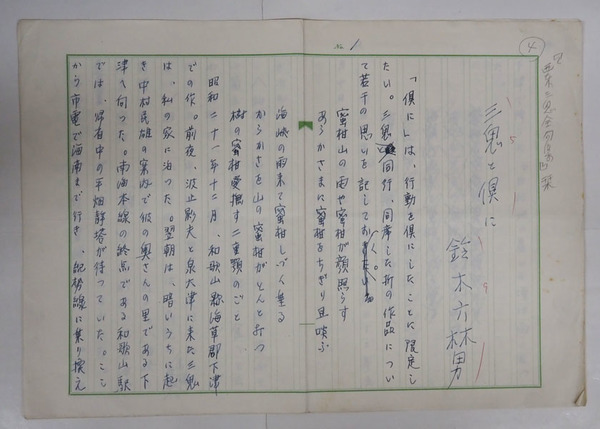 ④
西東三鬼全句集 栞
№ 1
三鬼と倶に
鈴木六林男
「倶に」は、行動を倶にしたことに限定し
たい。三鬼と同行、同席した折の作品につい
て若干の思いを記しておく。
蜜柑山の雨や蜜柑が顔照らす
あらかさまに蜜柑をちぎり且啖ふ
海峡の雨来て蜜柑しづく垂る
からかさを山の蜜柑がとんと打つ
樹の蜜柑愛撫す二重顎のごと
昭和二十一年十二月、和歌山縣海草郡下津
での作。前夜、波止影夫と泉大津に来た三鬼
は、私の家に泊った。翌朝は、暗いうちに起
き中村民雄の案内で彼の奥さんの里である下
津へ向った。南海本線の終点である和歌山駅
では、帰省中の平畑静塔が待っていた。ここ
から市電で海南まで行き、紀勢線に乗り換え